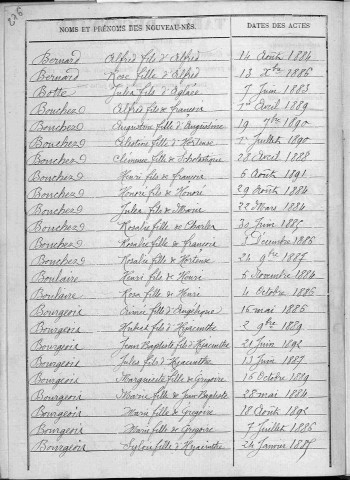 226
NOMS ET PRÉNOMS DES NOUVEAU-NÉS. DATES DES ACTES
Bernard Alfred fils d'Alfred 14 Août 1884
Bernard Rose fille d'Alfred 13 Xbre 1886
Botte Jules fils d'Aglaé 7 Juin 1883
Bouchez Alfred fils de françois 1er Avril 1889
Bouchez Augustine fille d'Augustine 19 7bre 1890
Bouchez Célestine fille d'Hortense 1er Juillet 1890
Bouchez Clémence fille de Scholastique 28 Avril 1888
Bouchez Henri fils de françois 6 Août 1891
Bouchez Honoré fils de Honoré 29 Août 1884
Bouchez Jules fils de Marie 22 Mars 1884
Bouchez Rosalie fille de Charles 30 Juin 1885
Bouchez Rosalie fille de françois 3 Décembre 1886
Bouchez Rosalie fille de Hortense 24 9bre 1887
Boulaire Henri fils de Henri 5 Novembre 1884
Boulaire Rosa fille de Henri 4 Octobre 1886
Bourgeois Aimée fille d'Angélique 16 mai 1886
Bourgeois Hubert fils d'Hyacinthe 2 9bre 1889
Bourgeois Jean Baptiste fils d'Hyacinthe 21 Juin 1892
Bourgeois Jules fils d'Hyacinthe 13 Juin 1887
Bourgeois Marguerite fille de Grégoire 16 Octobre 1889
Bourgeois Marie fille de Jean Baptiste 28 mai 1884
Bourgeois Marie fille de Grégoire 18 Août 1892
Bourgeois Marie fille de Grégoire 7 Juillet 1886
Bourgeois fille d'Hyacinthe 24 Janvier 1885